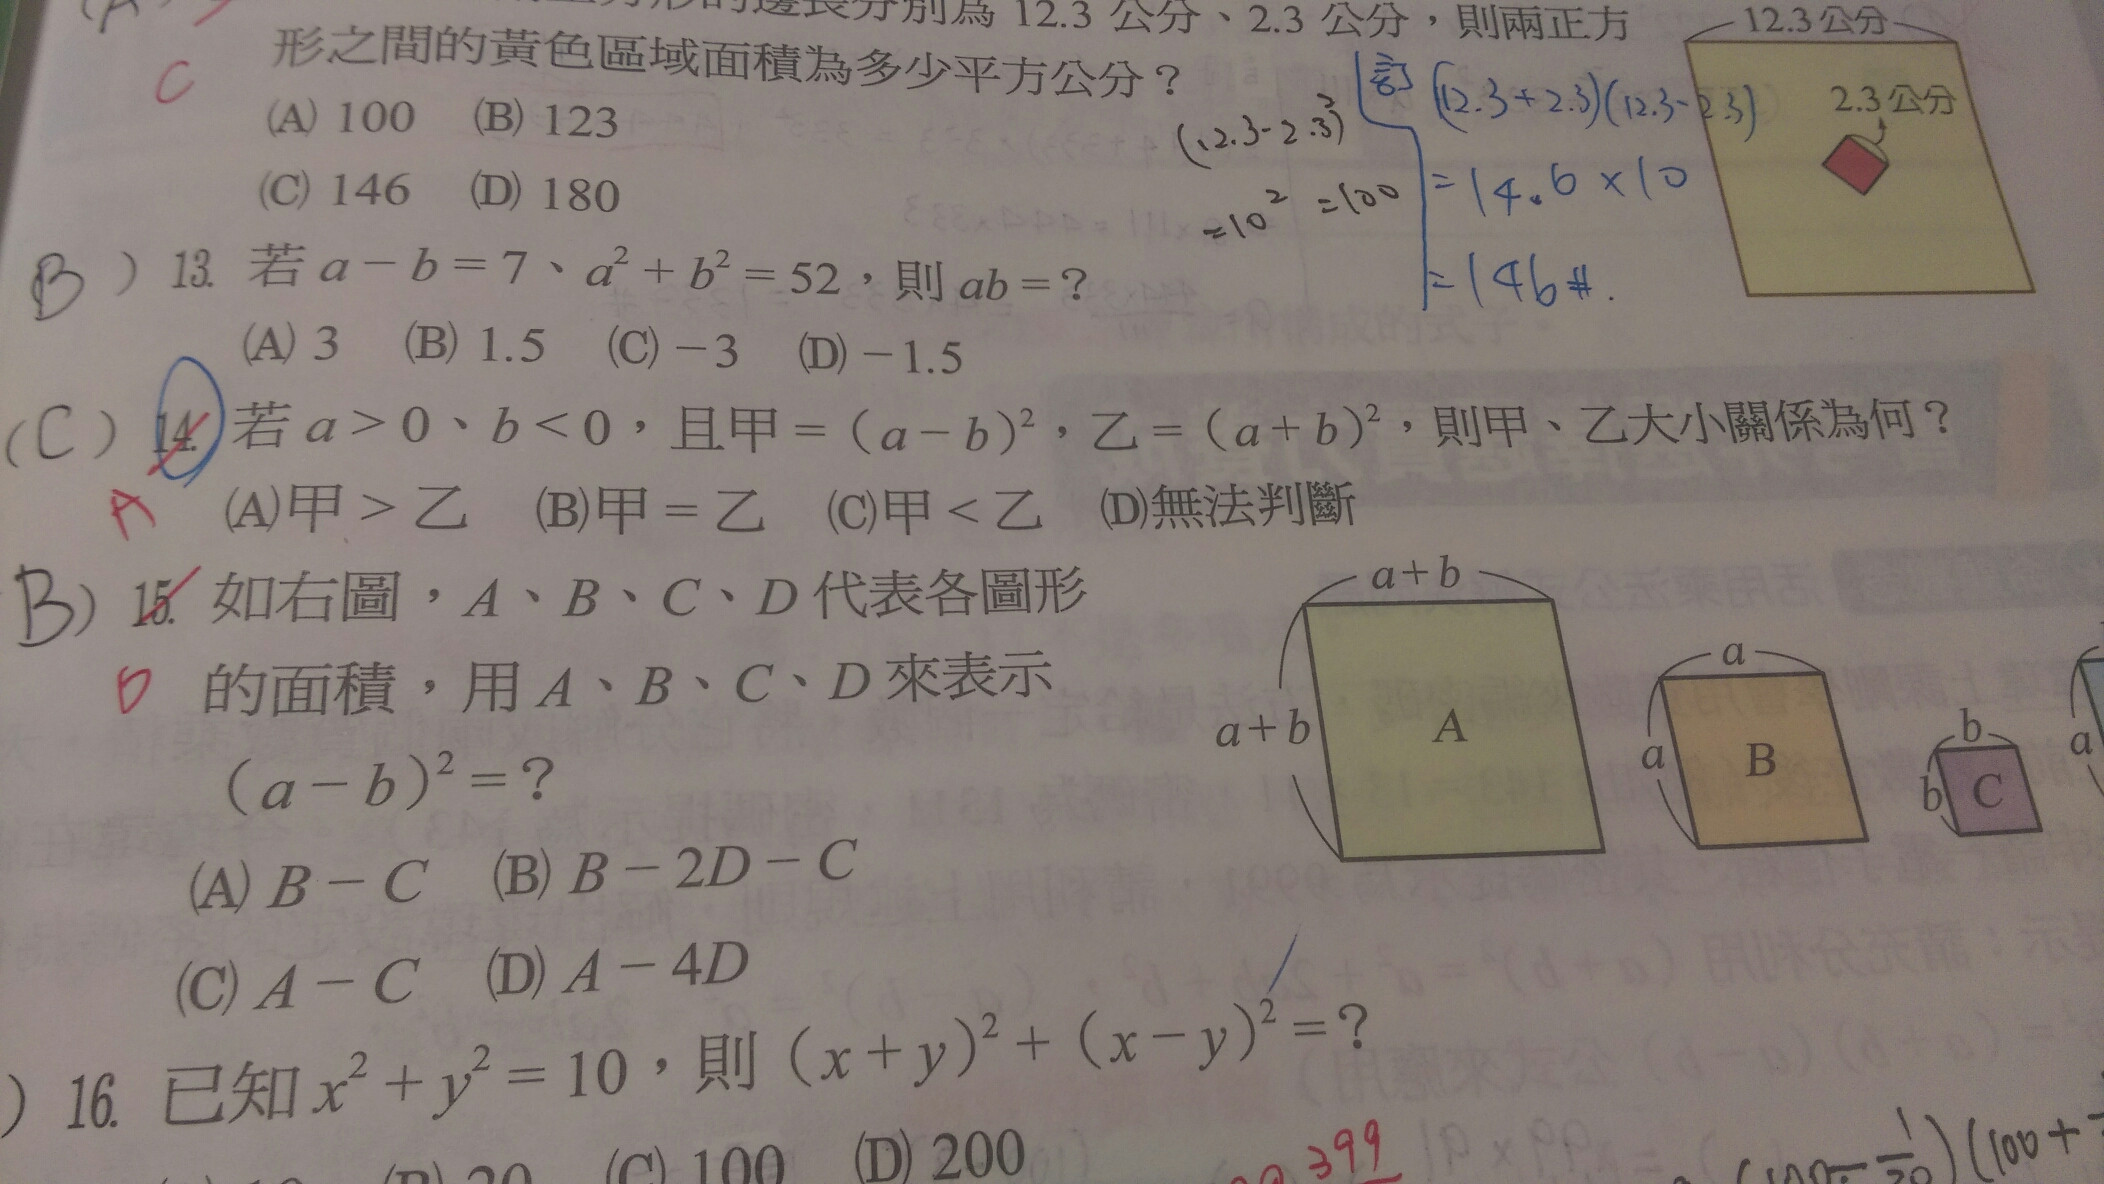 邊長分別為 12.3 公分、2.3 公分，則兩正方
12.3公分
C
形之間的黃色區域面積為多少平方公分？
2.3公分
(A) 100 (B) 123
(C) 146 (D) 180
(12.3-2.3)²
=10² =100
訂 (12.3+2.3)(12.3-2.3)
=14.6×10
=146#.
B ) 13. 若 a－b＝7、a²＋b²＝52，則 ab＝？
(A) 3 (B) 1.5 (C)－3 (D)－1.5
(C) 14. 若 a＞0、b＜0，且甲＝(a－b)²，乙＝(a＋b)²，則甲、乙大小關係為何？
A
(A)甲＞乙 (B)甲＝乙 (C)甲＜乙 (D)無法判斷
B) 15. 如右圖，A、B、C、D 代表各圖形
D
的面積，用 A、B、C、D 來表示
(a－b)²＝？
a+b
a+b
A
a
a
B
b
b
C
a
(A) B－C (B) B－2D－C
(C) A－C (D) A－4D
) 16. 已知 x²＋y²＝10，則 (x＋y)²＋(x－y)²＝？
(C) 100 (D) 200
399
(100+